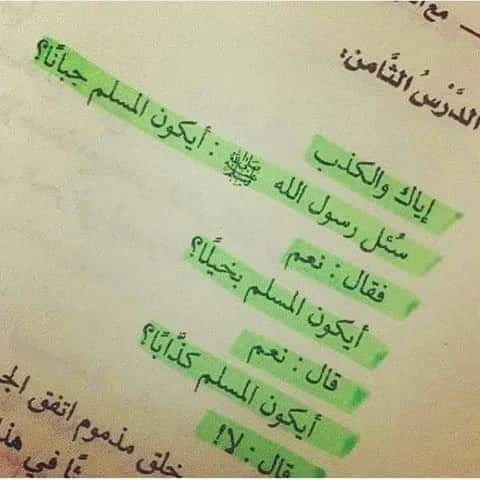 مع
الدَّرْسُ الثَّامن:
إياك والكذب
سُئل رسول الله ﷺ : أيكون المسلم جبانًا؟
فقال : نعم
أيكون المسلم بخيلًا؟
قال : نعم
أيكون المسلم كذَّابًا؟
قال : لا!
خلق مذموم اتفق
في هذا